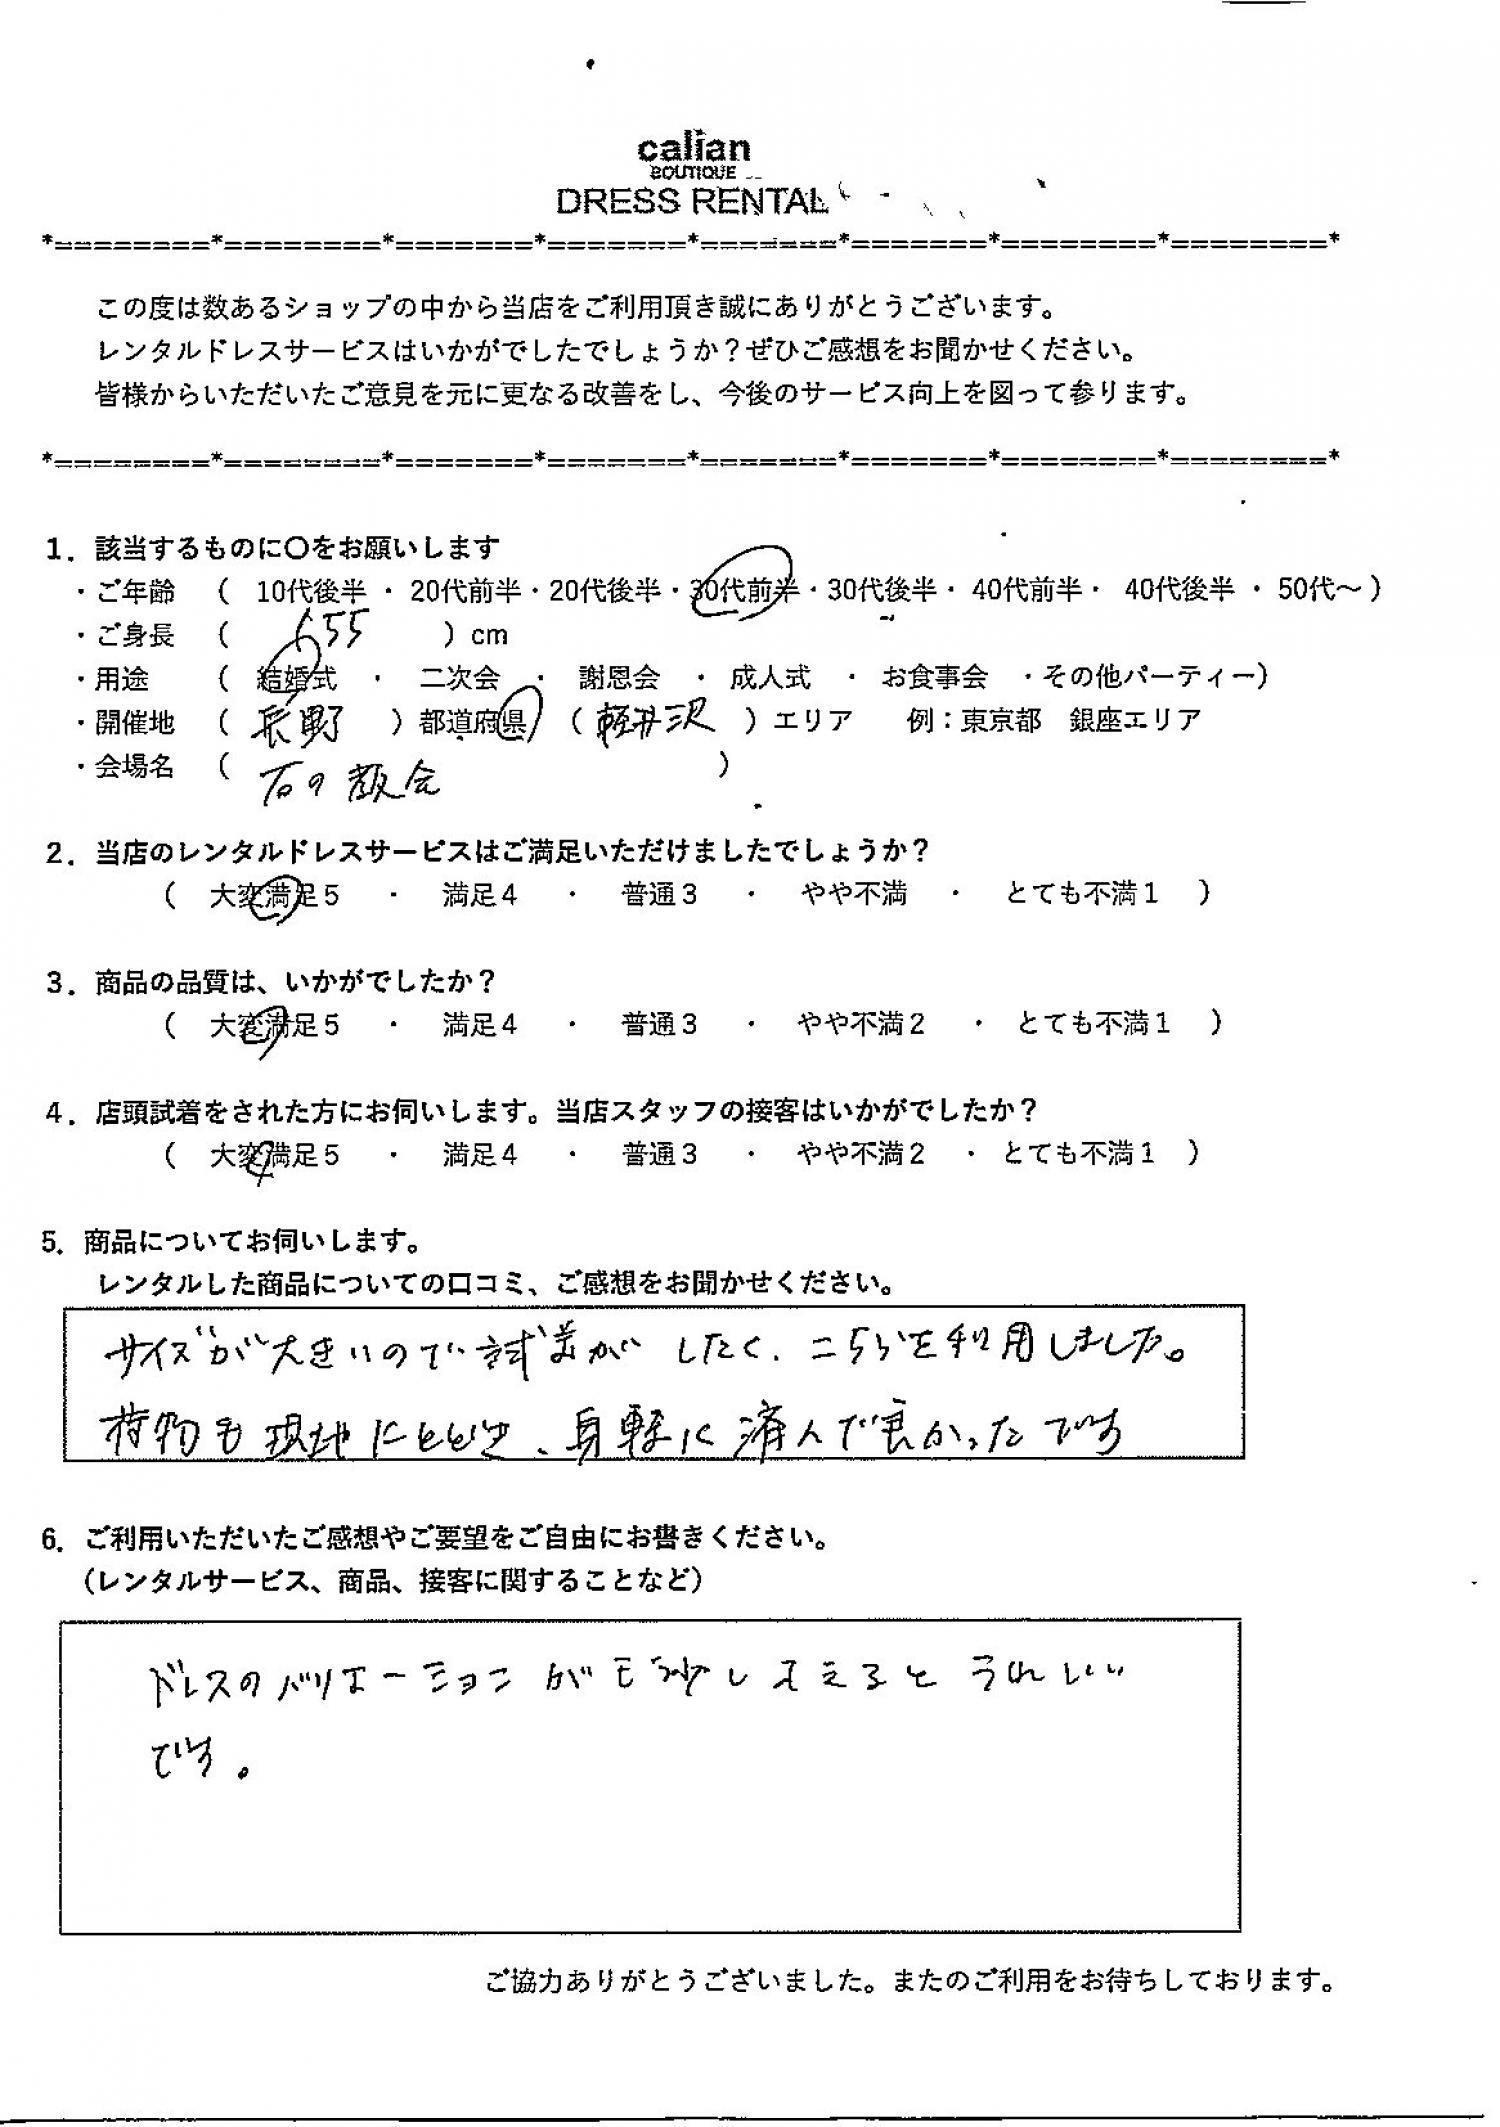 calian
BOUTIQUE
DRESS RENTAL
*========*========*=======*=======*=======*=======*========*========*
この度は数あるショップの中から当店をご利用頂き誠にありがとうございます。
レンタルドレスサービスはいかがでしたでしょうか？ぜひご感想をお聞かせください。
皆様からいただいたご意見を元に更なる改善をし、今後のサービス向上を図って参ります。
*========*========*=======*=======*=======*=======*========*========*
１．該当するものに〇をお願いします
・ご年齢 （ 10代後半 ・ 20代前半・20代後半・30代前半・30代後半・ 40代前半・ 40代後半 ・ 50代～）
・ご身長 （ 155 ）cm
・用途 （ 結婚式 ・ 二次会 ・ 謝恩会 ・ 成人式 ・ お食事会 ・その他パーティー）
・開催地 （ 長野 ）都道府県 （ 軽井沢 ）エリア 例：東京都 銀座エリア
・会場名 （ 石の教会 ）
２．当店のレンタルドレスサービスはご満足いただけましたでしょうか？
（ 大変満足５ ・ 満足４ ・ 普通３ ・ やや不満 ・ とても不満１ ）
３．商品の品質は、いかがでしたか？
（ 大変満足５ ・ 満足４ ・ 普通３ ・ やや不満２ ・ とても不満１ ）
４．店頭試着をされた方にお伺いします。当店スタッフの接客はいかがでしたか？
（ 大変満足５ ・ 満足４ ・ 普通３ ・ やや不満２ ・ とても不満１ ）
5．商品についてお伺いします。
レンタルした商品についての口コミ、ご感想をお聞かせください。
サイズが大きいので試着がしたく、こちらを利用しました。
荷物も現地にとどき、身軽に済んで良かったです
6．ご利用いただいたご感想やご要望をご自由にお書きください。
（レンタルサービス、商品、接客に関することなど）
ドレスのバリエーションがもう少しふえるとうれしい
です。
ご協力ありがとうございました。またのご利用をお待ちしております。